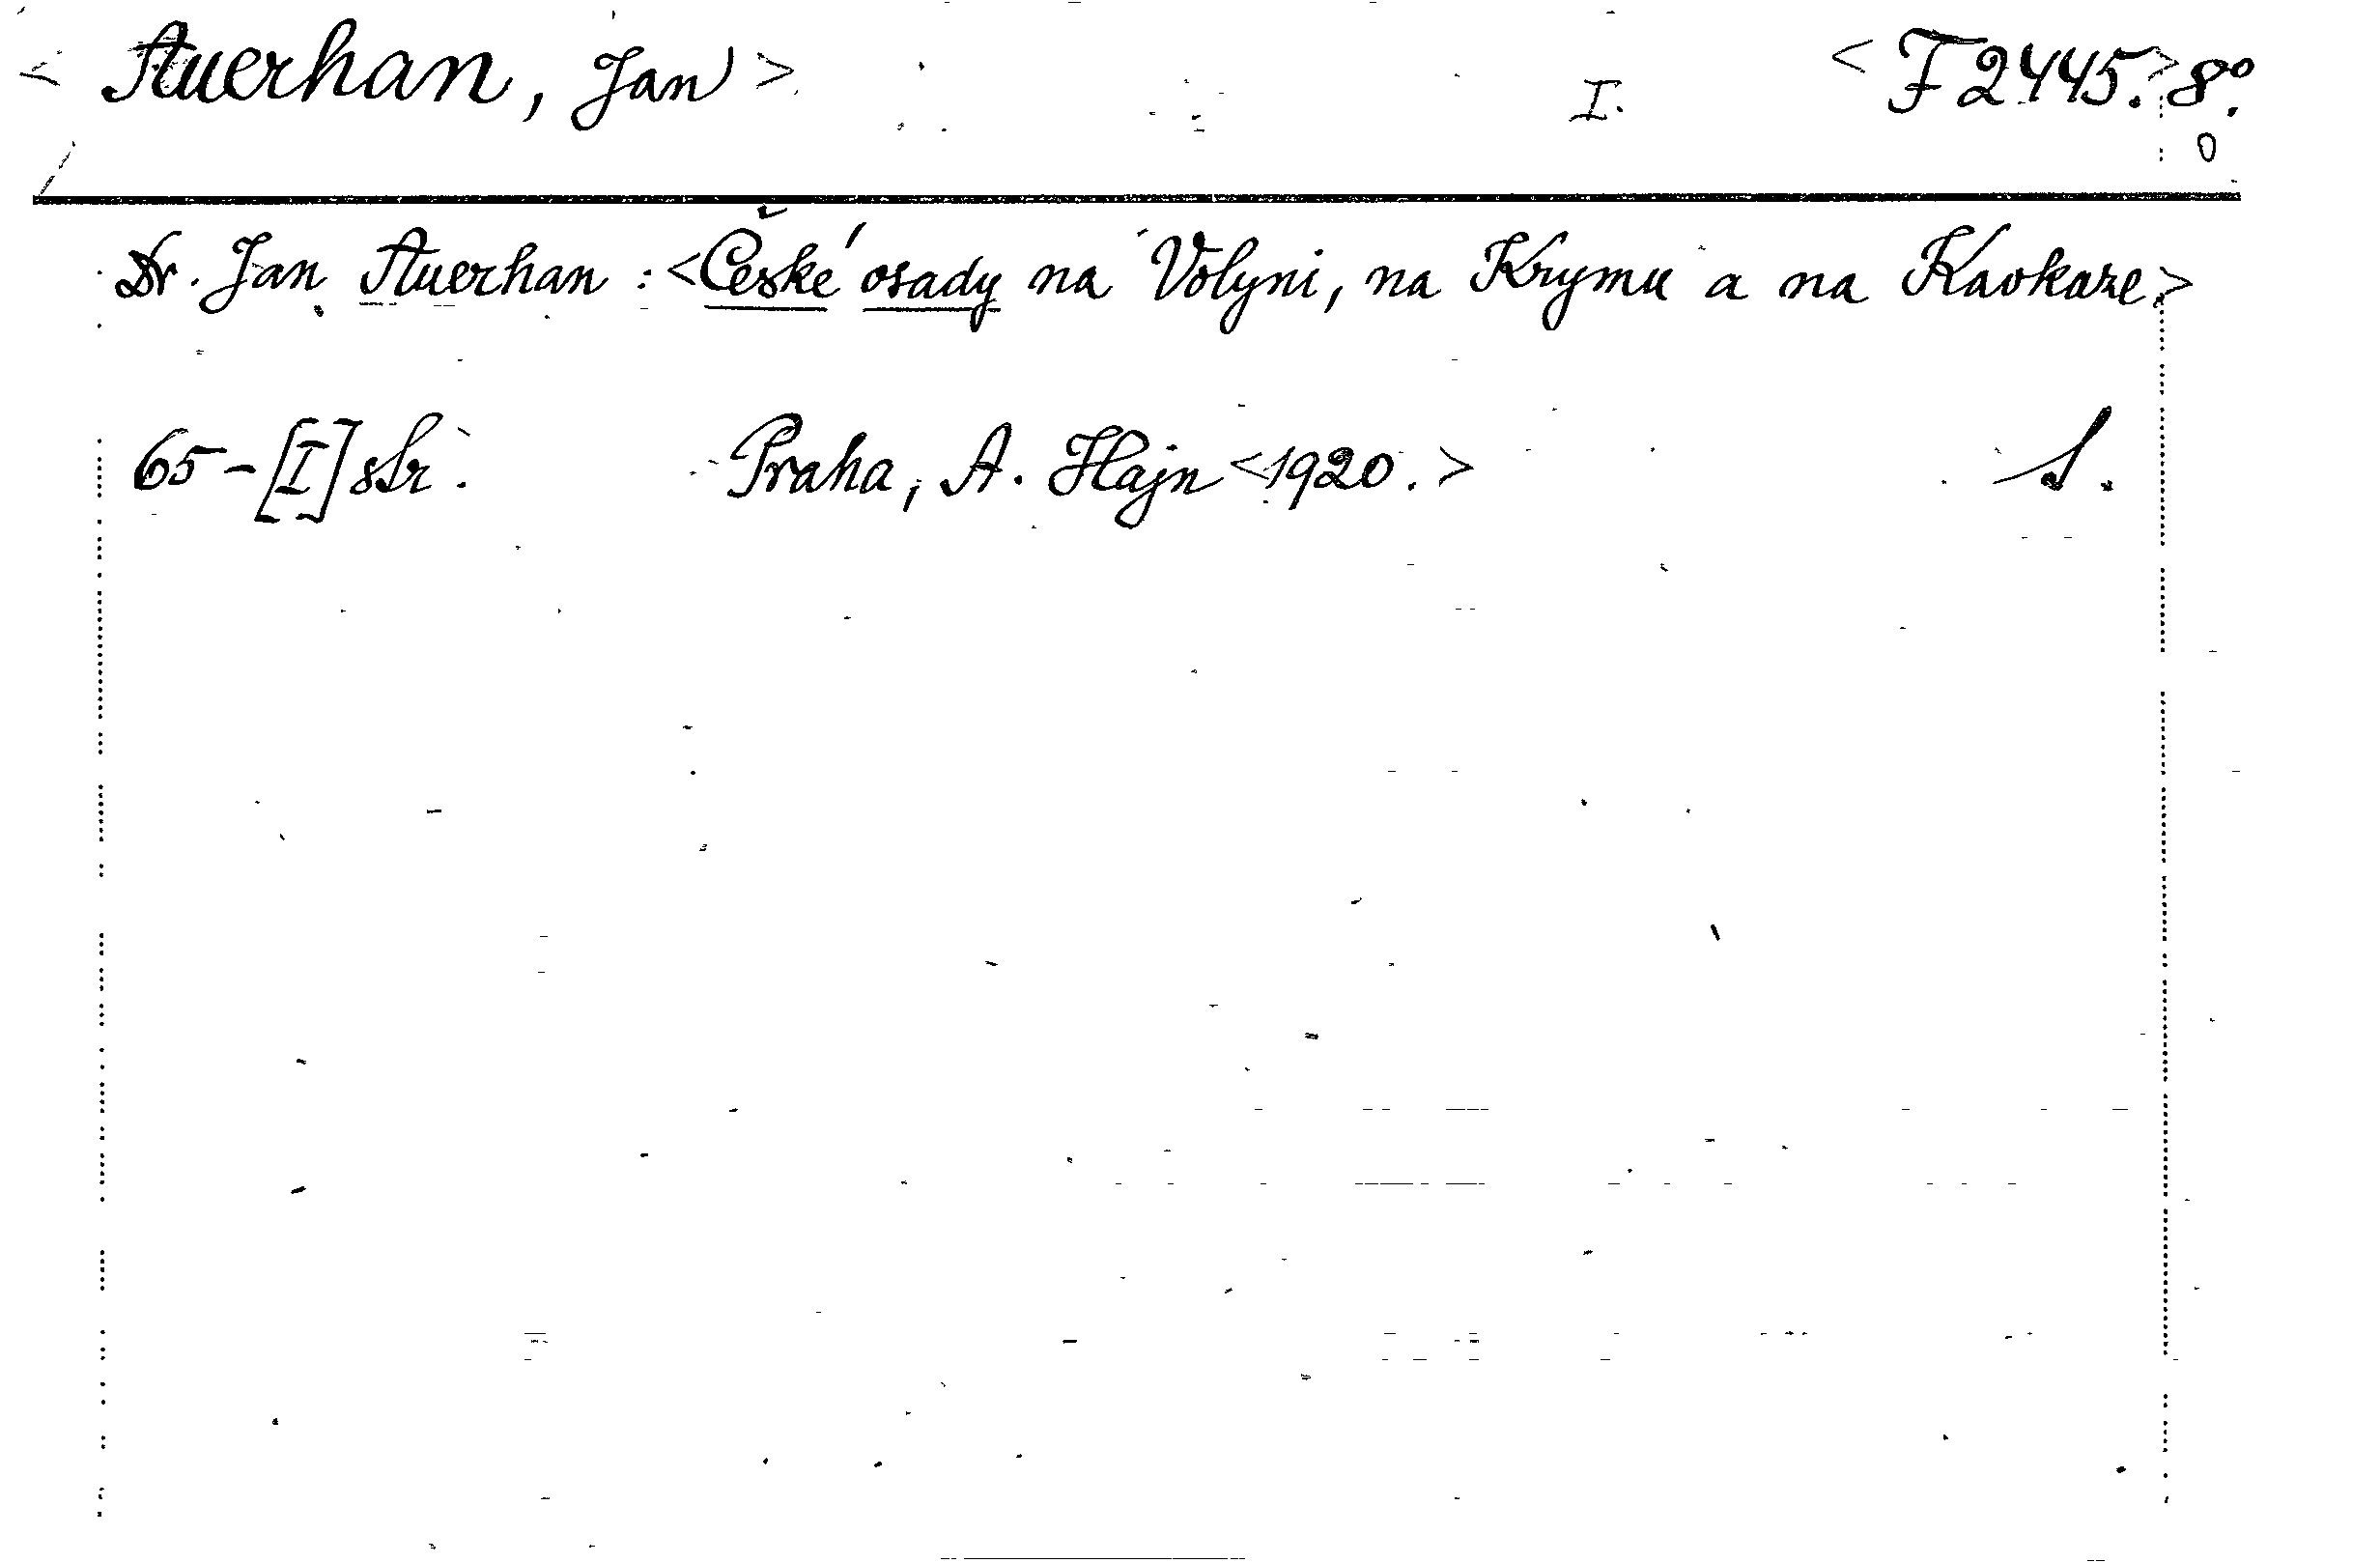 < Auerhan, Jan > I. < F 2445. > 8°.
0
Dr. Jan Auerhan : < České osady na Volyni, na Krymu a na Kavkaze. >
65-[I] str. Praha, A. Hajn < 1920. > S.